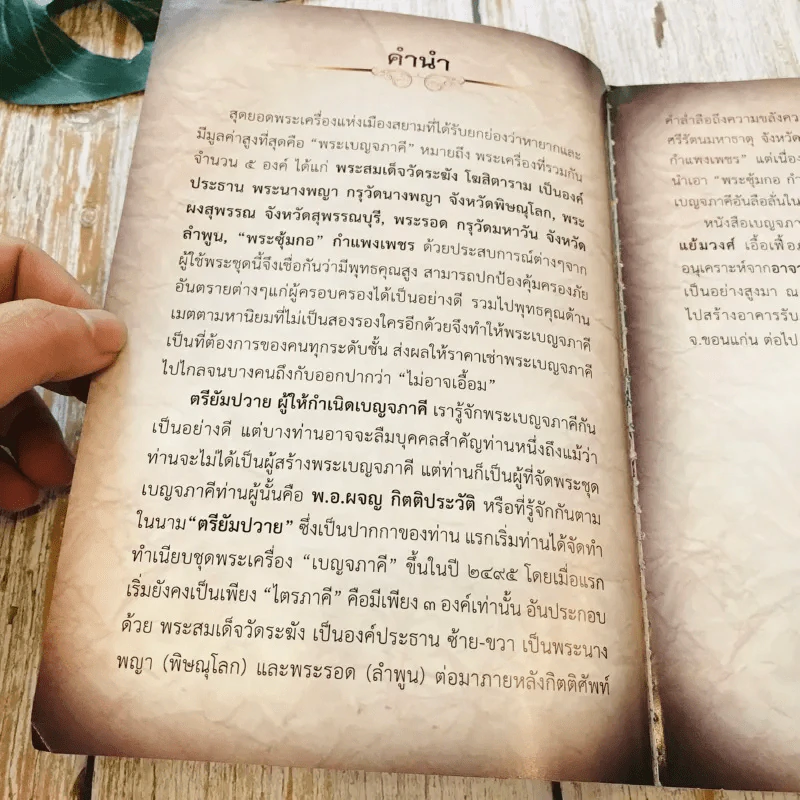 คำนำ
สุดยอดพระเครื่องแห่งเมืองสยามที่ได้รับยกย่องว่าหายากและ
มีมูลค่าสูงที่สุดคือ “พระเบญจภาคี” หมายถึง พระเครื่องที่รวมกัน
จำนวน ๕ องค์ ได้แก่ พระสมเด็จวัดระฆัง โฆสิตาราม เป็นองค์
ประธาน พระนางพญา กรุวัดนางพญา จังหวัดพิษณุโลก, พระ
ผงสุพรรณ จังหวัดสุพรรณบุรี, พระรอด กรุวัดมหาวัน จังหวัด
ลำพูน, “พระซุ้มกอ” กำแพงเพชร ด้วยประสบการณ์ต่างๆจาก
ผู้ใช้พระชุดนี้จึงเชื่อกันว่ามีพุทธคุณสูง สามารถปกป้องคุ้มครองภัย
อันตรายต่างๆแก่ผู้ครอบครองได้เป็นอย่างดี รวมไปพุทธคุณด้าน
เมตตามหานิยมที่ไม่เป็นสองรองใครอีกด้วยจึงทำให้พระเบญจภาคี
เป็นที่ต้องการของคนทุกระดับชั้น ส่งผลให้ราคาเช่าพระเบญจภาคี
ไปไกลจนบางคนถึงกับออกปากว่า “ไม่อาจเอื้อม”
ตรียัมปวาย ผู้ให้กำเนิดเบญจภาคี เรารู้จักพระเบญจภาคีกัน
เป็นอย่างดี แต่บางท่านอาจจะลืมบุคคลสำคัญท่านหนึ่งถึงแม้ว่า
ท่านจะไม่ได้เป็นผู้สร้างพระเบญจภาคี แต่ท่านก็เป็นผู้ที่จัดพระชุด
เบญจภาคีท่านผู้นั้นคือ พ.อ.ผจญ กิตติประวัติ หรือที่รู้จักกันตาม
ในนาม“ตรียัมปวาย” ซึ่งเป็นปากกาของท่าน แรกเริ่มท่านได้จัดทำ
ทำเนียบชุดพระเครื่อง “เบญจภาคี” ขึ้นในปี ๒๔๙๕ โดยเมื่อแรก
เริ่มยังคงเป็นเพียง “ไตรภาคี” คือมีเพียง ๓ องค์เท่านั้น อันประกอบ
ด้วย พระสมเด็จวัดระฆัง เป็นองค์ประธาน ซ้าย-ขวา เป็นพระนาง
พญา (พิษณุโลก) และพระรอด (ลำพูน) ต่อมาภายหลังกิตติศัพท์
คำลำลือถึงความขลังคว
ศรีรัตนมหาธาตุ จังหวัด
กำแพงเพชร” แต่เนื่อง
นำเอา “พระซุ้มกอ กำ
เบญจภาคีอันลือลั่นใน
หนังสือเบญจภา
แย้มวงศ์ เอื้อเฟื้อ
อนุเคราะห์จากอาจา
เป็นอย่างสูงมา ณ
ไปสร้างอาคารรับ
จ.ขอนแก่น ต่อไป